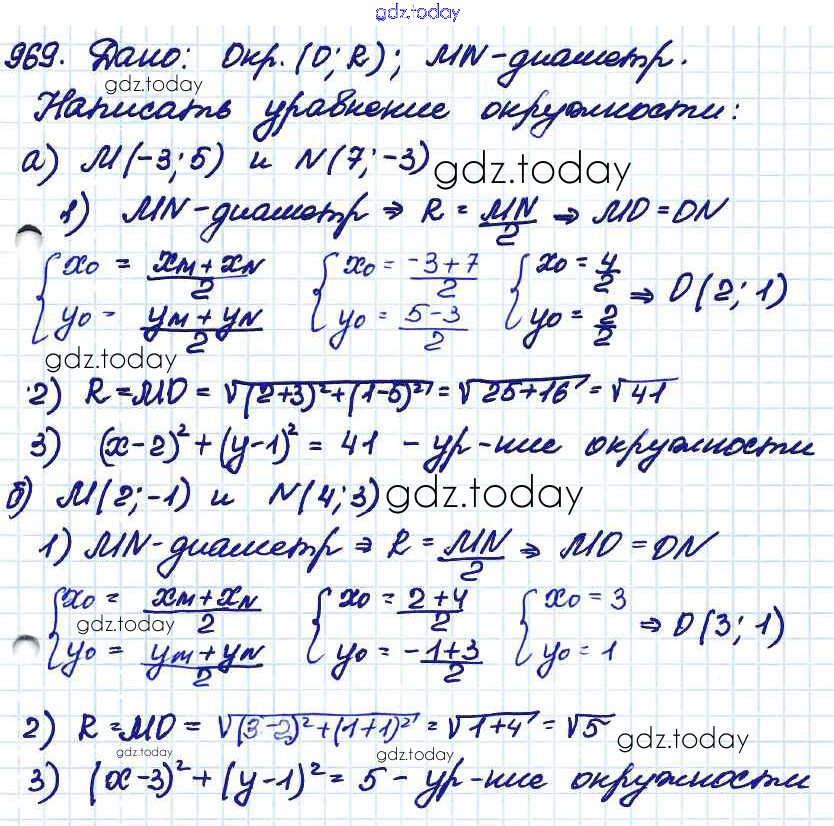 gdz.today
969. Дано: Окр. (O; R); MN-диаметр.
gdz.today
Написать уравнение окружности:
а) M(-3; 5) и N(7; -3) gdz.today
1) MN-диаметр ⇒ R = MN/2 ⇒ MO = ON
{x₀ = (xM + xN)/2 {x₀ = (-3+7)/2 {x₀ = 4/2
{y₀ = (yM + yN)/2 {y₀ = (5-3)/2 {y₀ = 2/2 ⇒ O(2; 1)
gdz.today
2) R = MO = √((2+3)²+(1-5)²) = √(25+16) = √41
3) (x-2)² + (y-1)² = 41 - ур-ние окружности
б) M(2; -1) и N(4; 3) gdz.today
1) MN-диаметр ⇒ R = MN/2 ⇒ MO = ON
{x₀ = (xM + xN)/2 {x₀ = (2+4)/2 {x₀ = 3
gdz.today
{y₀ = (yM + yN)/2 {y₀ = (-1+3)/2 {y₀ = 1 ⇒ O(3; 1)
2) R = MO = √((3-2)²+(1+1)²) = √(1+4) = √5 gdz.today
gdz.today gdz.today
3) (x-3)² + (y-1)² = 5 - ур-ние окружности